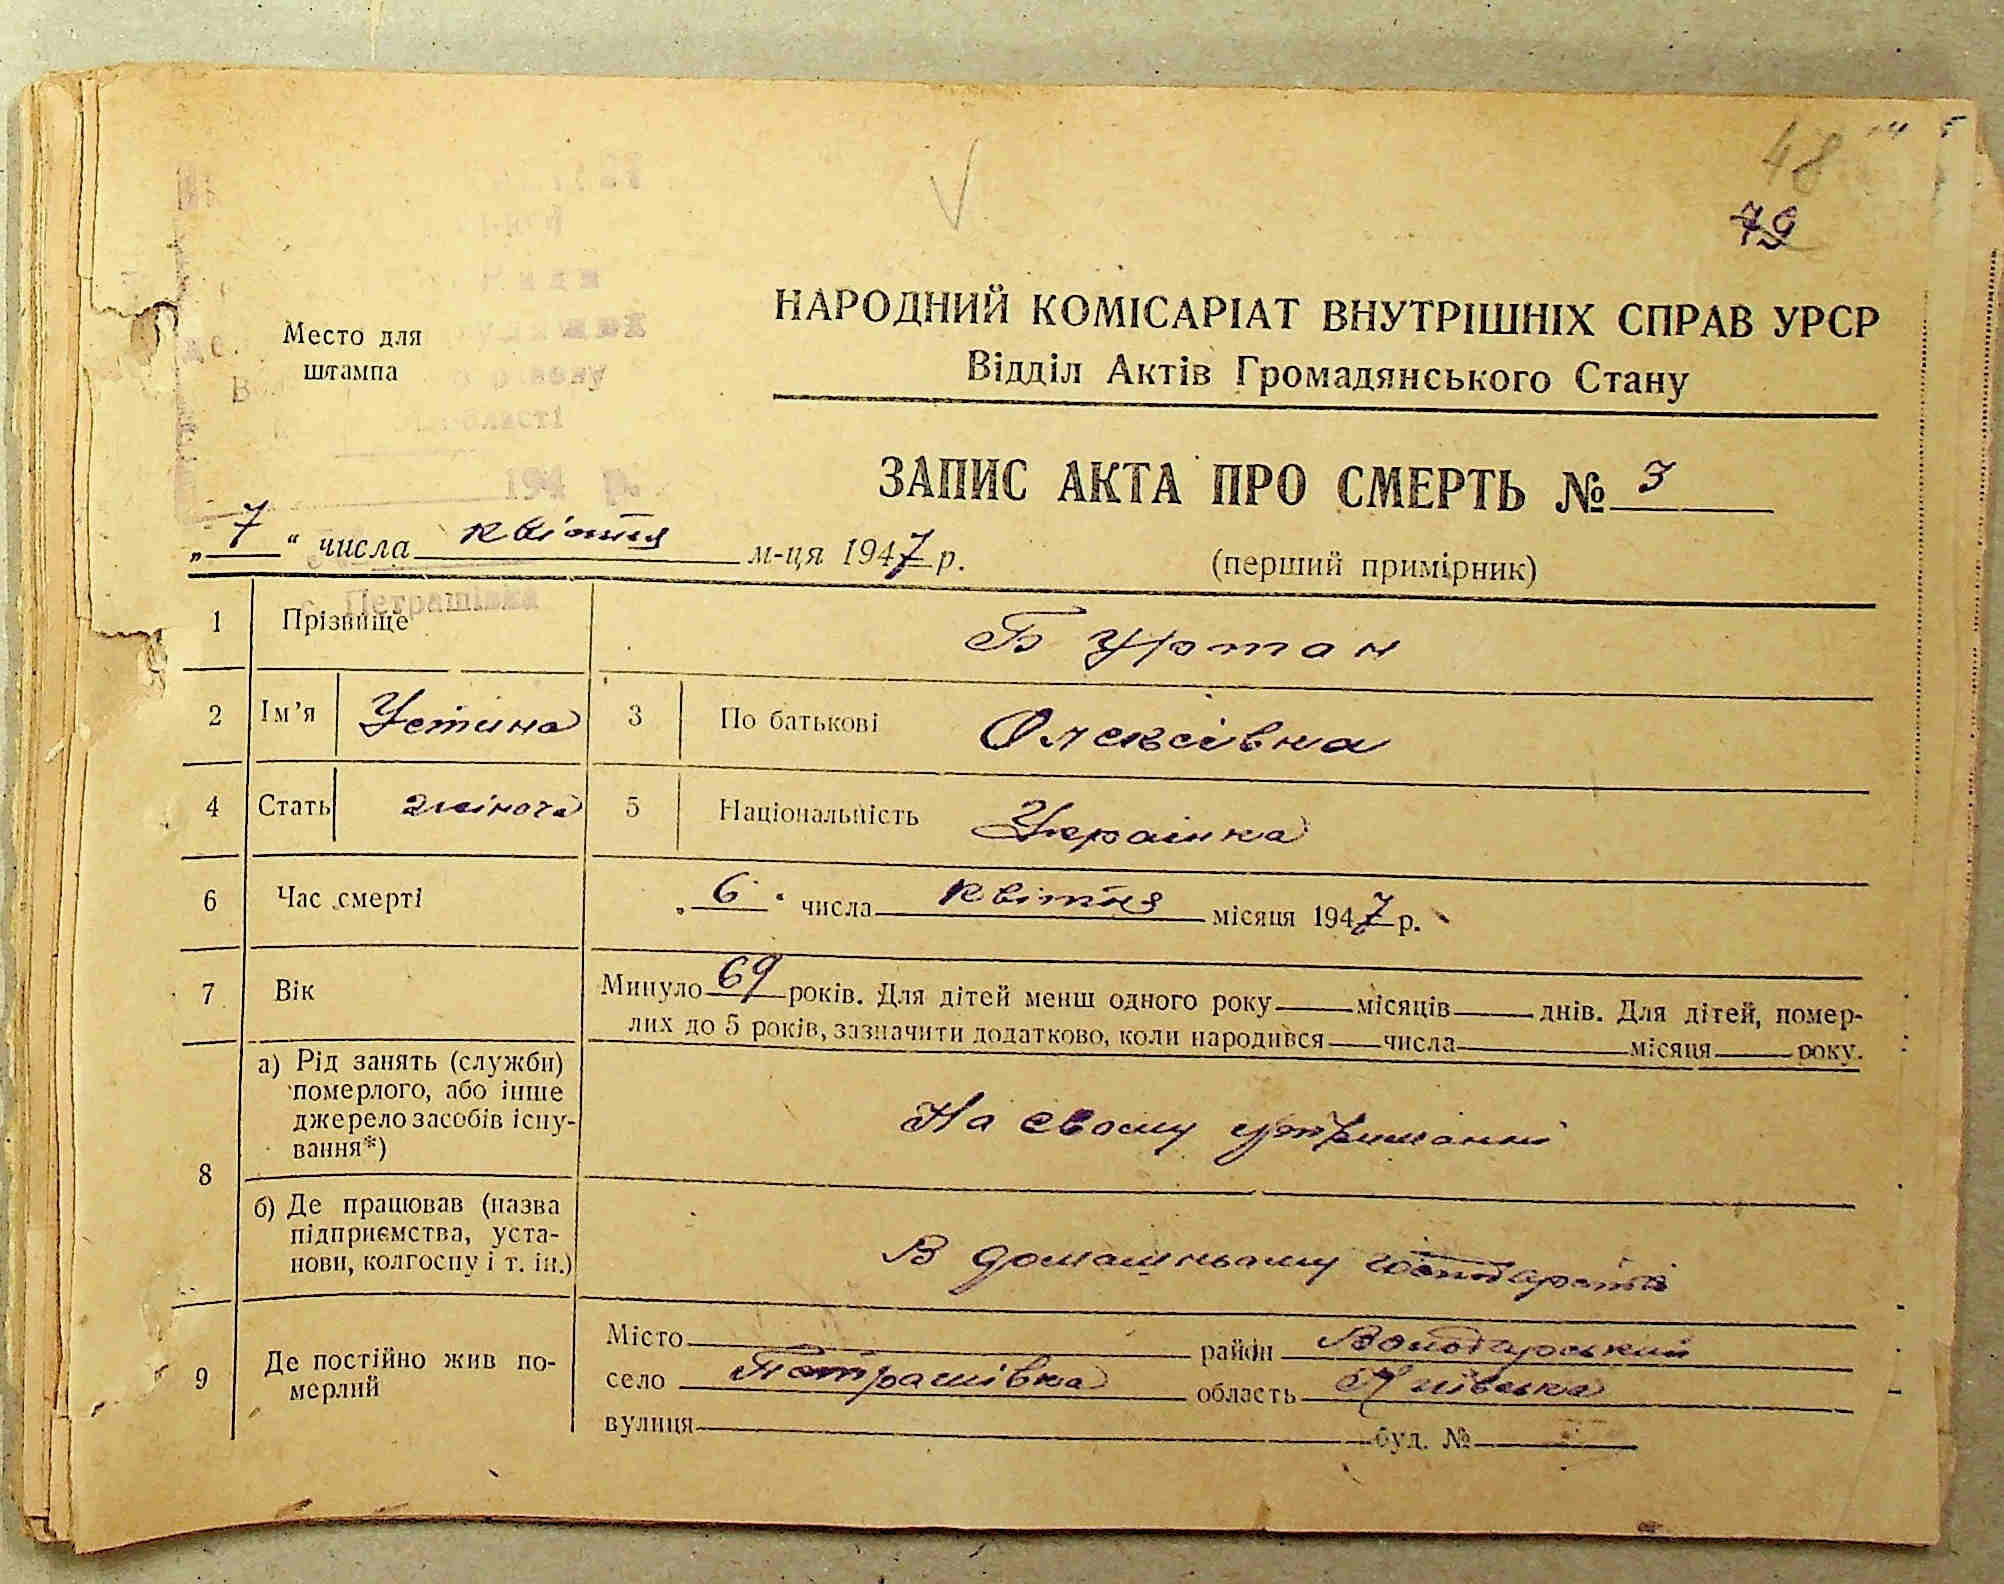 48
79
Место для
штампа
району
області
194 р.
с. Петрашівка
НАРОДНИЙ КОМІСАРІАТ ВНУТРІШНІХ СПРАВ УРСР
Відділ Актів Громадянського Стану
ЗАПИС АКТА ПРО СМЕРТЬ № 3
„7“ числа квітня м-ця 1947 р. (перший примірник)
1 Прізвище Буртан
2 Ім’я Устина 3 По батькові Олексівна
4 Стать жіноча 5 Національність Українка
6 Час смерті „6“ числа квітня місяця 1947 р.
7 Вік Минуло 69 років. Для дітей менш одного року місяців днів. Для дітей, помер-
лих до 5 років, зазначити додатково, коли народився числа місяця року.
8 а) Рід занять (служби)
померлого, або інше
джерело засобів існу-
вання*)
На своєму утриманні
б) Де працював (назва
підприємства, уста-
нови, колгоспу і т. ін.)
В домашньому
9 Де постійно жив по-
мерлий
Місто район Володарський
село Петрашівка область Київська
вулиця буд. №